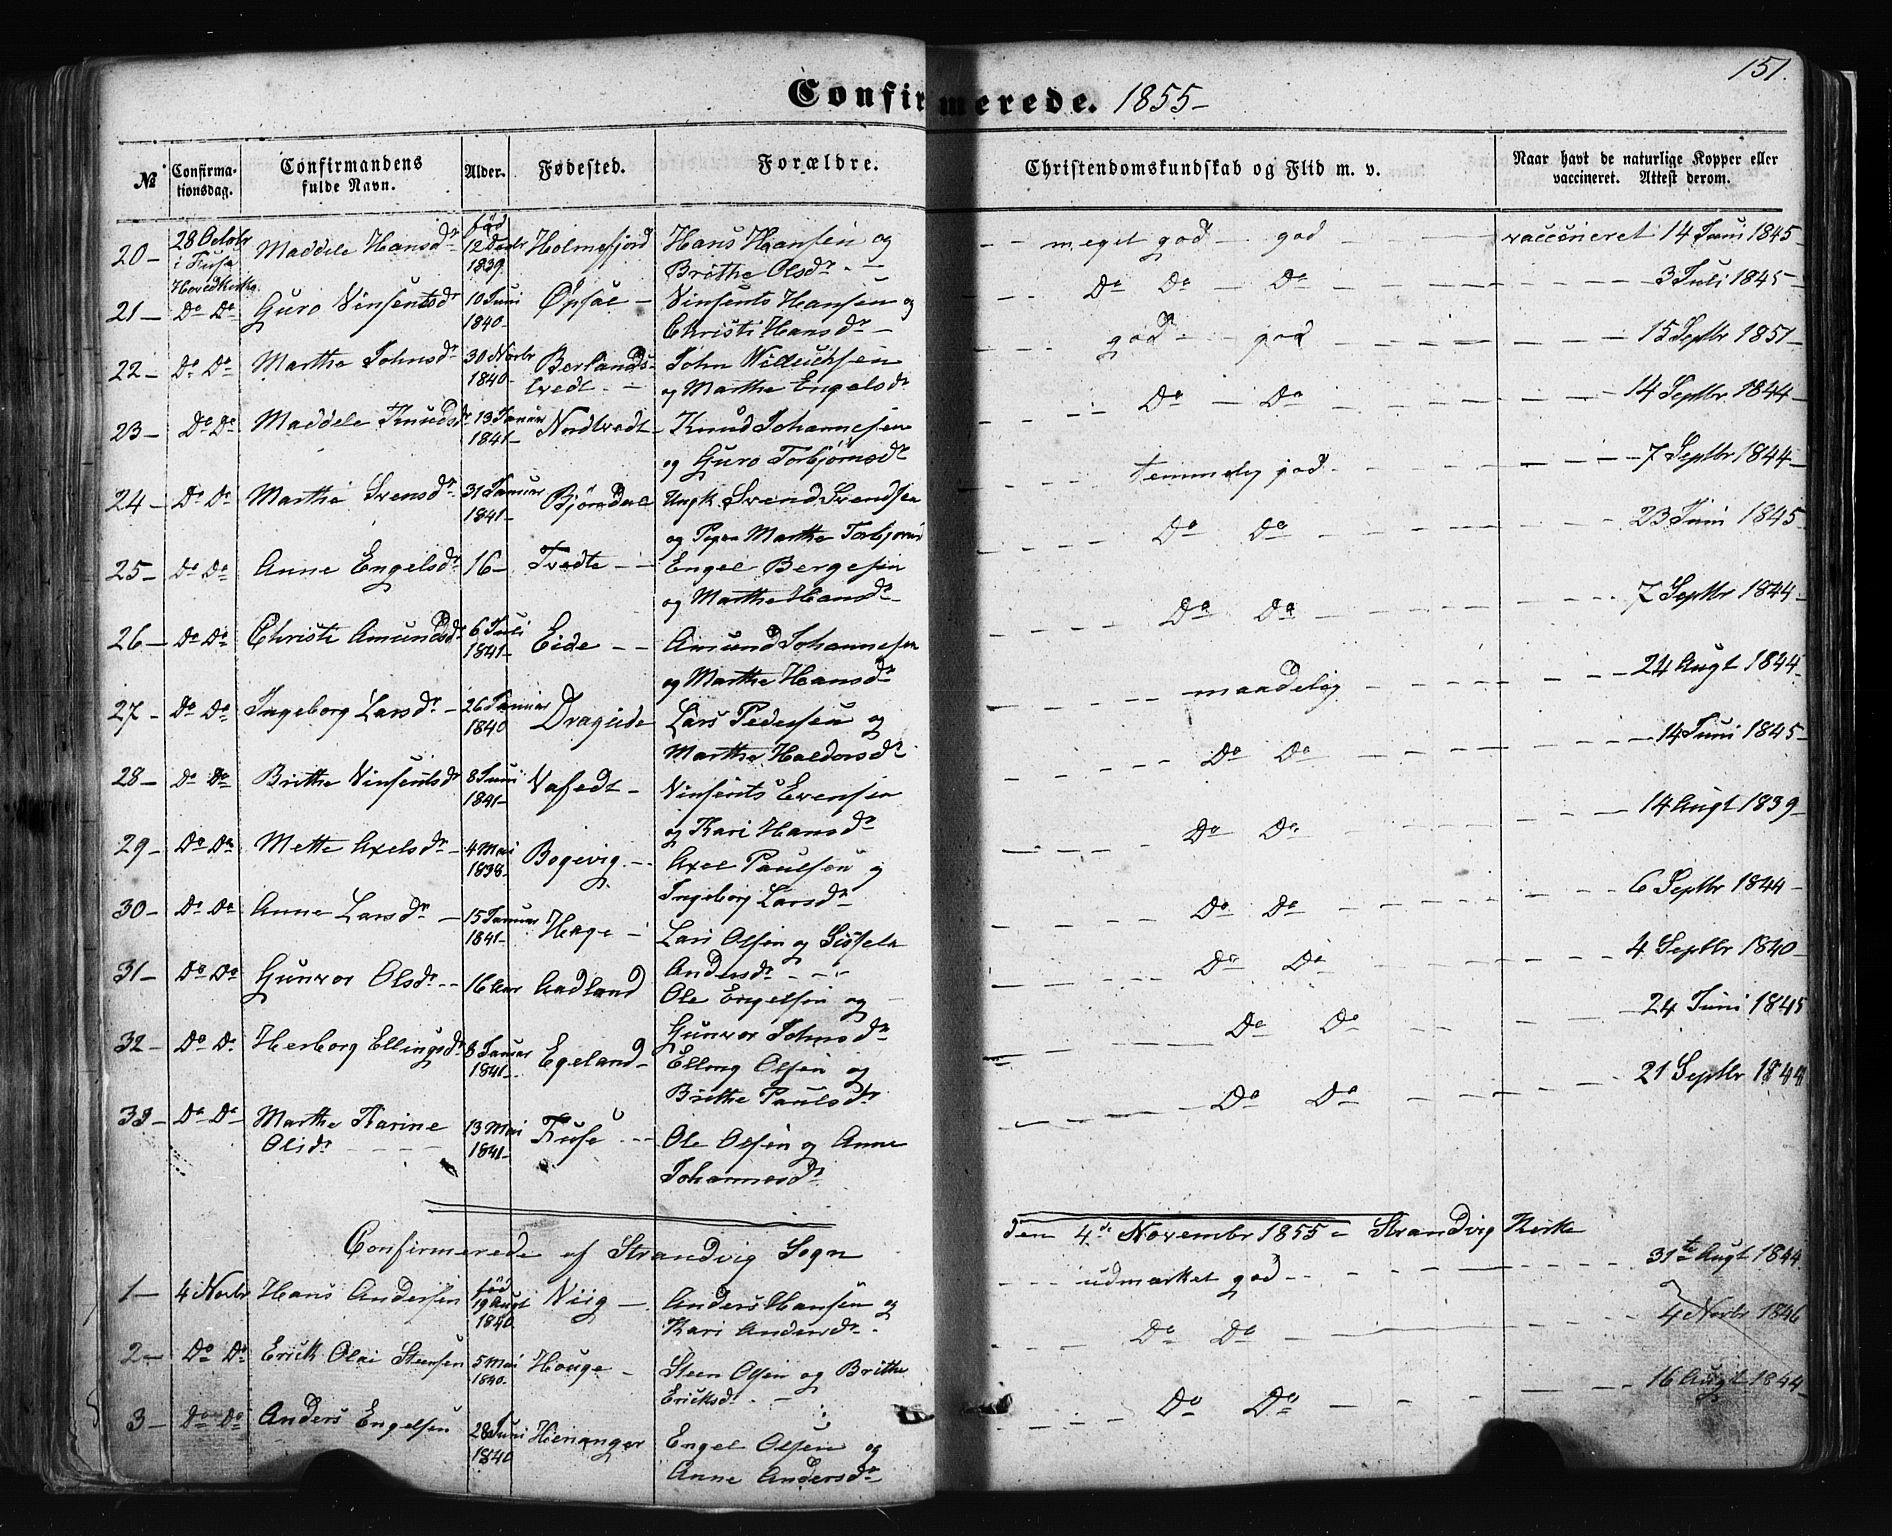 151.
Confirmerede. 1855-
№ Confirmationsdag. Confirmandens fulde Navn. Alder. Fødested. Forældre. Christendomskundskab og Flid m. v. Naar havt de naturlige Kopper eller vaccineret. Attest derom.
20- 28 Octobr i Fuse Hovedkirke Maddele Hansdr født 12 Decbr 1839 Holmefjord Hans Hansen og Brithe Olsdr. - meget god - god vaccineret 14 Juni 1845-
21- Do Do Guro Vinsentsdr 10 Juni 1840- Øpsal - Vinsents Hansen og Christi Hansdr - Do Do - Do 3 Juli 1845-
22- Do Do Marthe Johnsdr 30 Novbr 1840- Berlandstvedt - John Villichsen og Marthe Engelsdr god - god 15 Septbr 1851-
23- Do Do Maddele Knudsdr 13 Januar 1841- Nordtvedt - Knud Johannesen og Guro Torbjørnsdr Do - Do 14 Septbr 1844-
24- Do Do Marthe Svensdr 31 Januar 1841- Bjørndal Ungk. Svend Svendsen og Pigen Marthe Torbjørns temmelig god - 7 Septbr 1844-
25- Do Do Anne Engelsdr 16- Tvedte - Engel Bergesen og Marthe Hansdr - Do Do 23 Juni 1845-
26- Do Do Christi Amundsdr 6 Juli 1841- Eide - - Amund Johannesen og Marthe Hansdr Do Do - 7 Septbr 1844-
27- Do Do Ingeborg Larsdr - 26 Januar 1840 Drageide Lars Pedersen og Marthe Haldorsdr maadelig 24 Augt 1844-
28- Do Do Brithe Vinsentsdr 8 Juni 1841- Vafedt - Vinsents Evensen og Kari Hansdr Do Do 14 Juni 1845-
29- Do Do Mette Axelsdr - 4 Mai 1838- Bogevig - Axel Paulsen og Ingeborg Larsdr Do Do 14 Augt 1839-
30- Do Do Anne Larsdr - 15 Januar 1841- Hage - Lars Olsen og Sissela Andersdr - Do Do 6 Septbr 1844-
31- Do Do Gunvor Olsdr - - 16 Aar Aadland Ole Engelsen og Gunvor Johnsdr Do Do 4 Septbr 1840-
32- Do Do Herborg Ellingsdr 8 Januar 1841- Egeland - Elling Olsen og Brithe Paulsdr Do Do 24 Juni 1845
33- Do Do Marthe Karine Olsdr - 13 Mai 1841- Fuse - - Ole Olsen og Anne Johannesdr Do Do 21 Septbr 1844
Confirmerede af Strandvig Sogn den 4de Novembr 1855 i Strandvig Kirke
1- 4 Novbr Hans Andersen født 19 Augt 1840 Viig - Anders Hansen og Kari Andersdr. udmærket god - 31te Augt 1844
2- Do Do Erick Olai Steensen 5 Mai 1840- Houge - Steen Olsen og Brithe Ericksdr. - Do Do 4 Novbr 1846
3- Do Do Anders Engelsen 28 Juni 1840 Hienanger Engel Olsen og Anne Andersdr Do Do 16 Augt 1844-